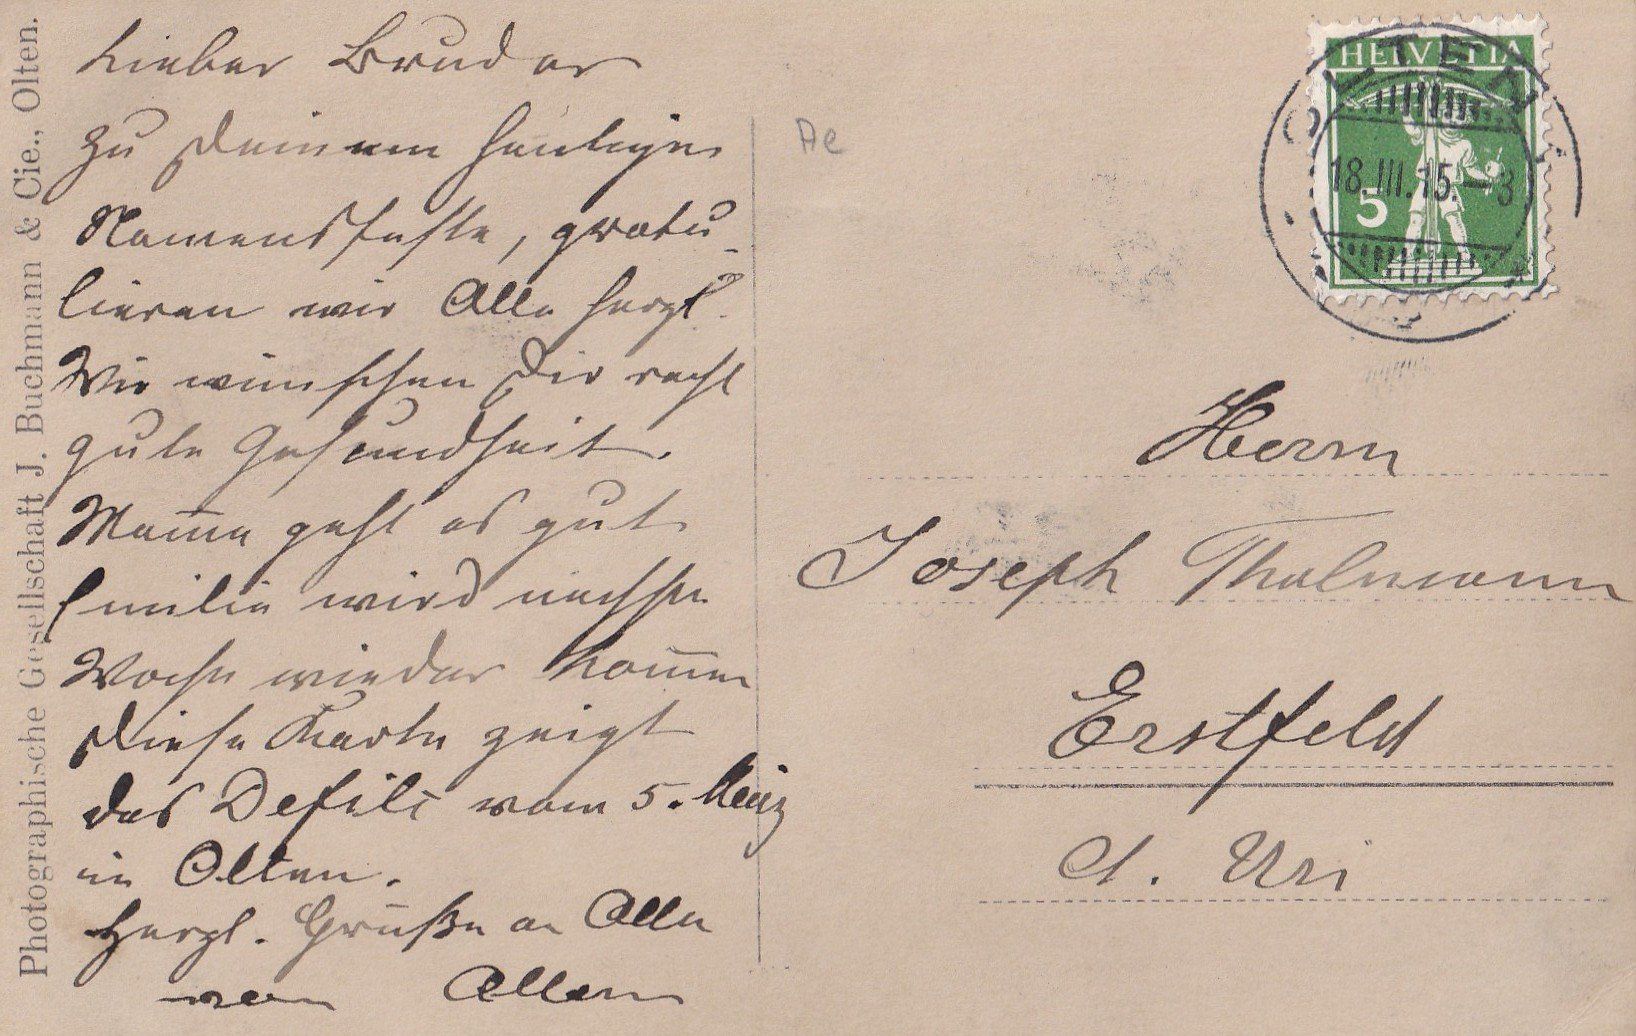 Photographische Gesellschaft J. Buchmann & Cie., Olten.
Lieber Bruder
Zu Deinem heutigen
Namensfeste, gratu-
lieren wir Alle herzl.
Wir wünschen Dir recht
gute Gesundheit.
Mam̅a geht es gut
Emilie wird nächste
Woche wieder kom̅en
Diese Karte zeigt
das Defilé vom 5. März
in Olten.
Herzl. Grüße an Alle
von Allen
Ae
HELVETIA
5
OLTEN
18.III.15.–3
Herrn
Joseph Thalmann
Erstfeld
Ct. Uri